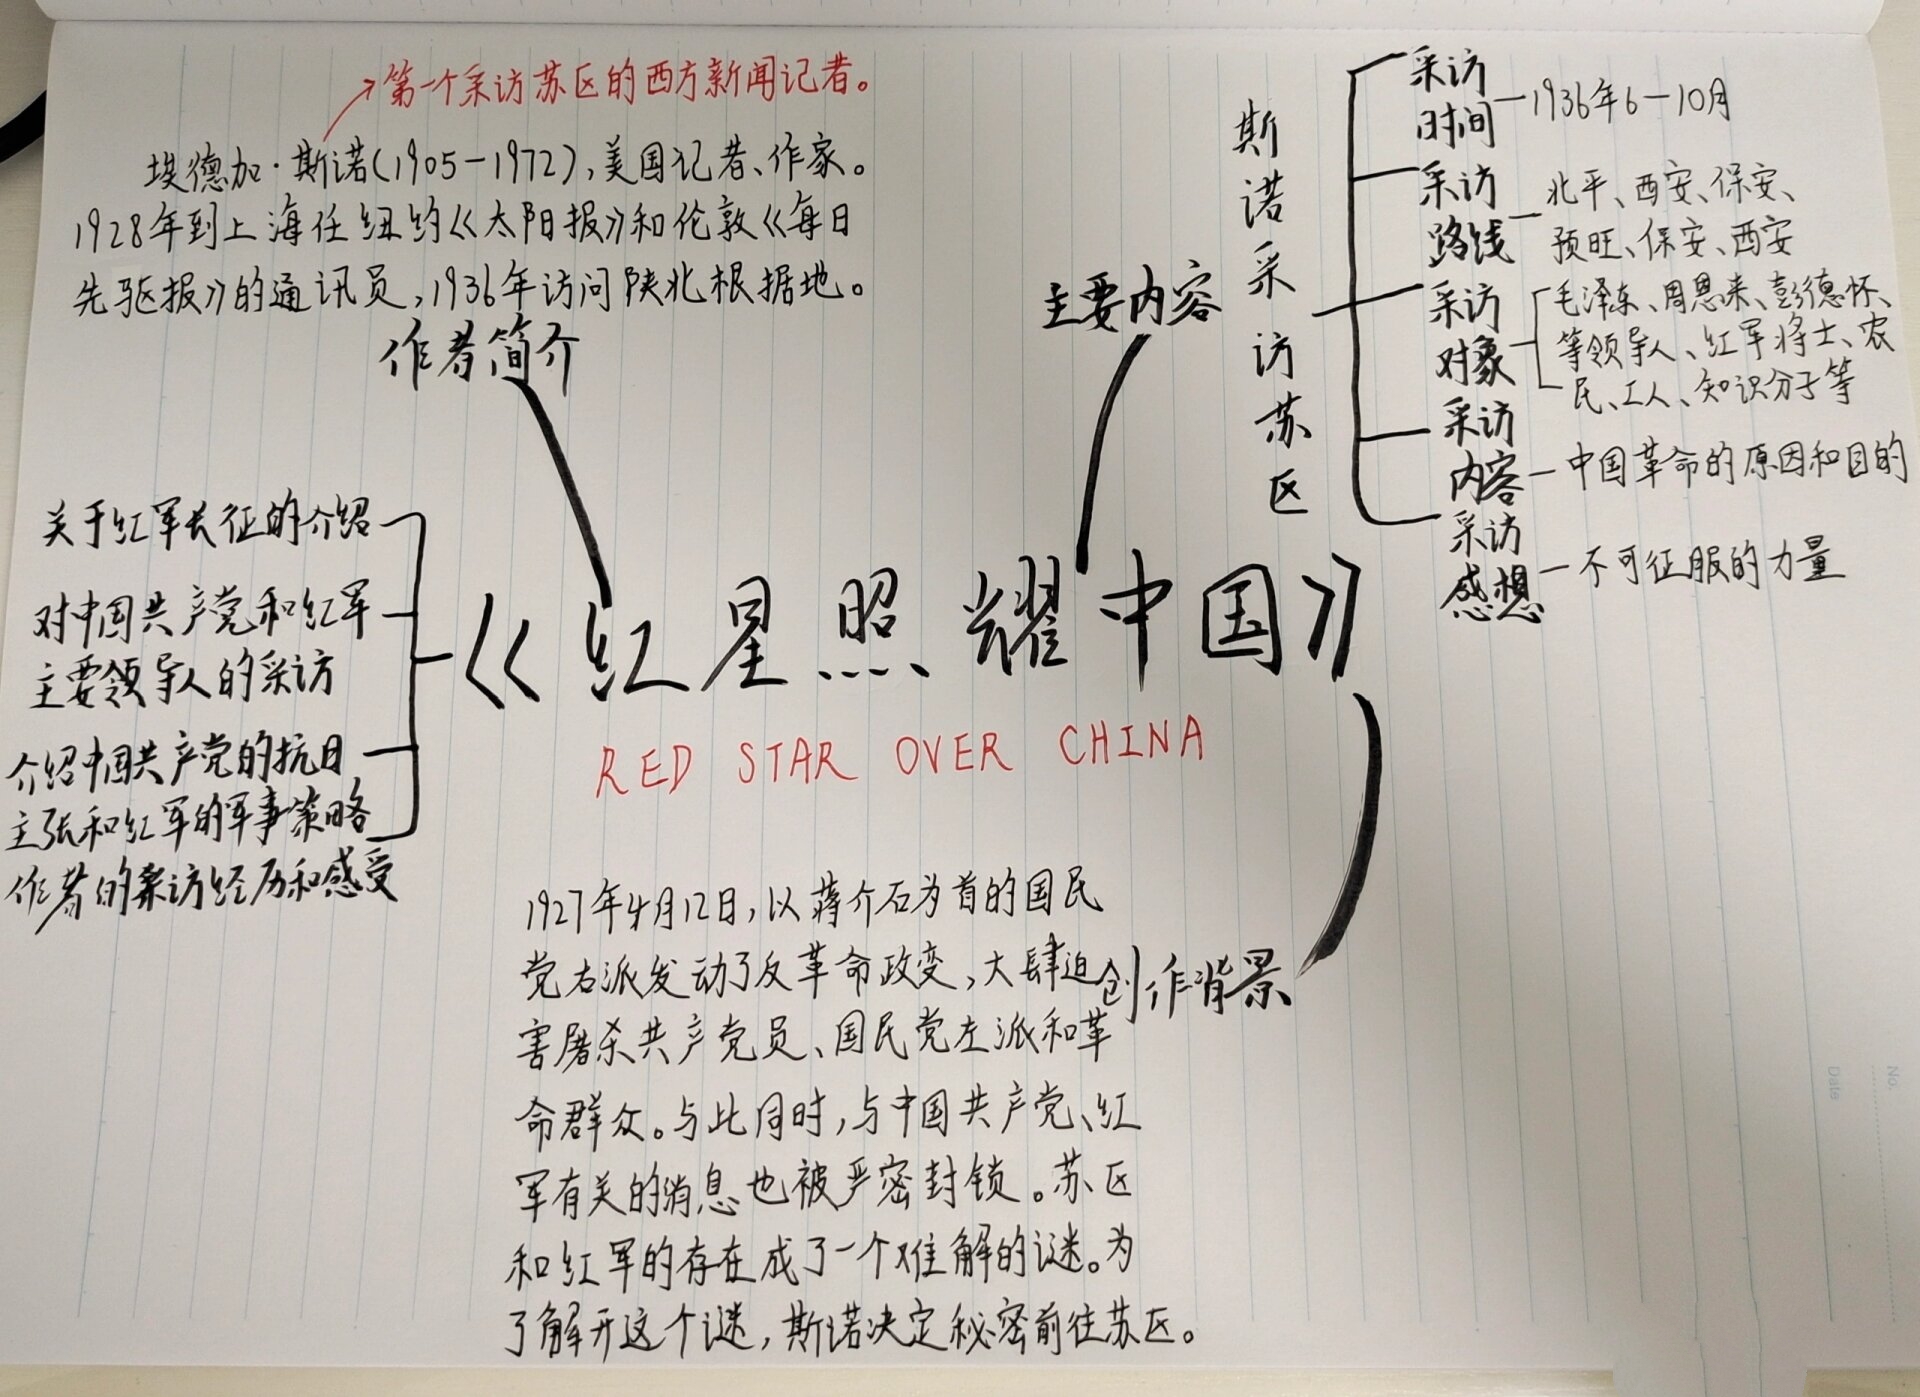 第一个采访苏区的西方新闻记者。
埃德加·斯诺(1905-1972),美国记者、作家。
1928年到上海任纽约《太阳报》和伦敦《每日
先驱报》的通讯员,1936年访问陕北根据地。
作者简介
主要内容
斯诺采访苏区
采访
时间
1936年6-10月
采访
路线
北平、西安、保安、
预旺、保安、西安
采访
对象
毛泽东、周恩来、彭德怀、
等领导人、红军将士、农
民、工人、知识分子等
采访
内容
中国革命的原因和目的
采访
感想
不可征服的力量
关于红军长征的介绍
对中国共产党和红军
主要领导人的采访
介绍中国共产党的抗日
主张和红军的军事策略
作者的采访经历和感受
《红星照耀中国》
RED STAR OVER CHINA
创作背景
1927年4月12日,以蒋介石为首的国民
党右派发动了反革命政变,大肆迫
害屠杀共产党员、国民党左派和革
命群众。与此同时,与中国共产党、红
军有关的消息也被严密封锁。苏区
和红军的存在成了一个难解的谜。为
了解开这个谜,斯诺决定秘密前往苏区。
No.
Date